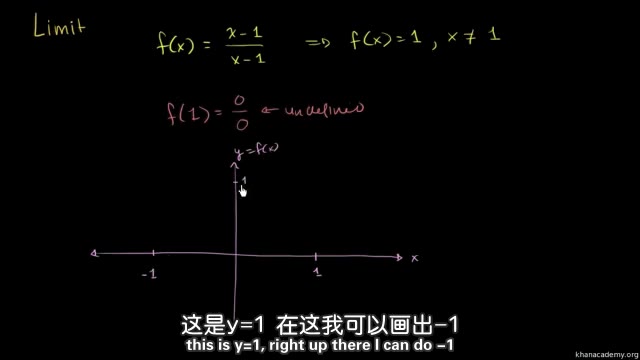 Limit
f(x) = x-1 / x-1 ⇒ f(x) = 1 , x ≠ 1
f(1) = 0 / 0 ← undefined
y = f(x)
1
-1 1 x
这是y=1 在这我可以画出-1
this is y=1, right up there I can do -1
khanacademy.org